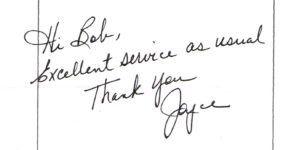 Hi Bob,
Excellent service as usual
Thank you
Joyce